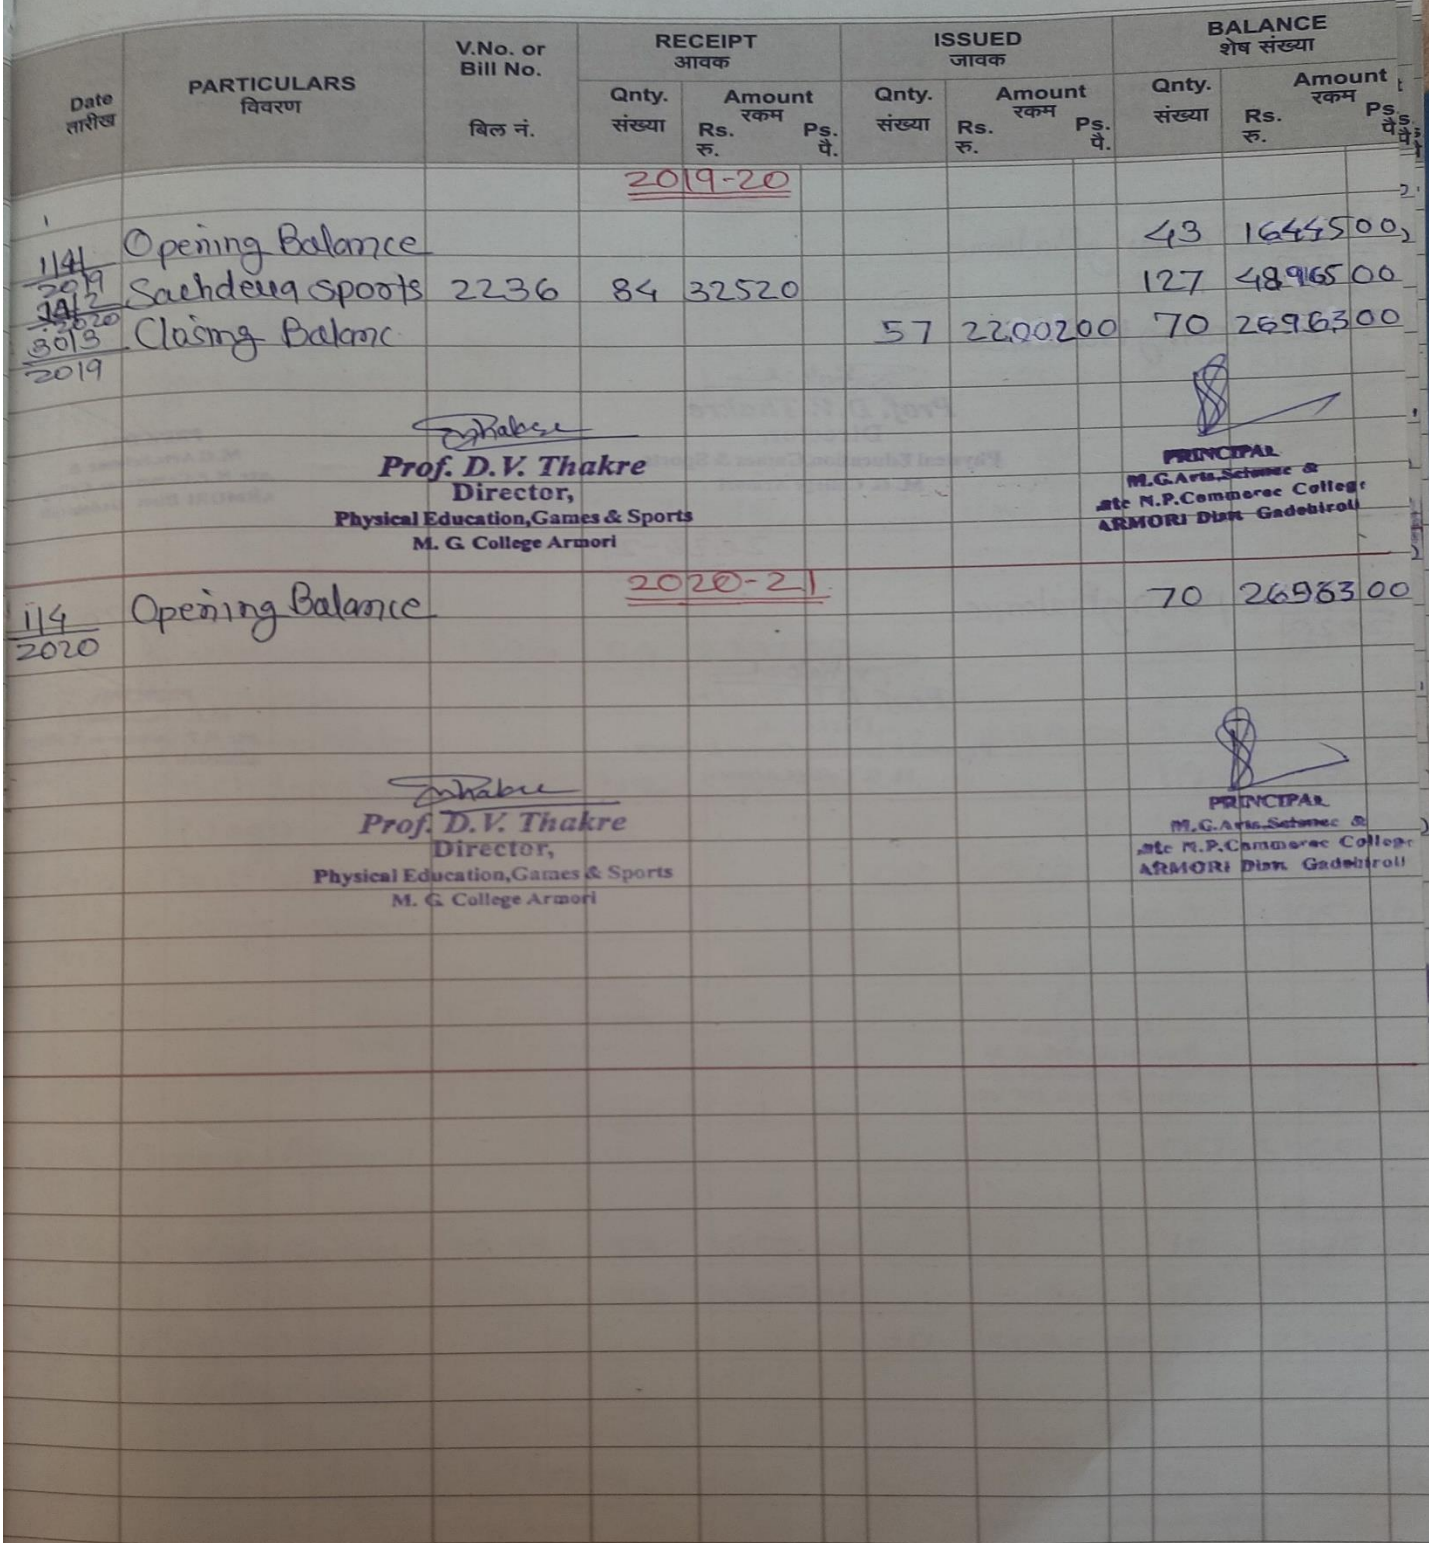 Date तारीख PARTICULARS विवरण V.No. or Bill No. बिल नं. RECEIPT आवक ISSUED जावक BALANCE शेष संख्या
Qnty. संख्या Amount रकम Rs. रु. Ps. पै. Qnty. संख्या Amount रकम Rs. रु. Ps. पै. Qnty. संख्या Amount रकम Rs. रु. Ps. पै.
2019-20
1/4/2019 Opening Balance 43 16445 00
/2/2020 Sachdeva sports 2236 84 32520 127 48965 00
30/3/2019 Closing Balanc 57 22002 00 70 26963 00
Prof. D.V. Thakre
Director,
Physical Education,Games & Sports
M. G. College Armori
PRINCIPAL
M.G.Arts,Science &
ate N.P.Commerce College
ARMORI Distt. Gadchiroli
2020-21
1/4/2020 Opening Balance 70 26963 00
Prof. D.V. Thakre
Director,
Physical Education,Games & Sports
M. G. College Armori
PRINCIPAL
M.G.Arts,Science &
ate N.P.Commerce College
ARMORI Distt. Gadchiroli